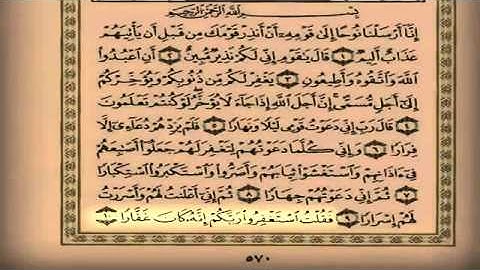 بِسْمِ اللَّهِ الرَّحْمَٰنِ الرَّحِيمِ
إِنَّا أَرْسَلْنَا نُوحًا إِلَىٰ قَوْمِهِ أَنْ أَنذِرْ قَوْمَكَ مِن قَبْلِ أَن يَأْتِيَهُمْ
عَذَابٌ أَلِيمٌ ١ قَالَ يَٰقَوْمِ إِنِّي لَكُمْ نَذِيرٌ مُّبِينٌ ٢ أَنِ اعْبُدُوا
اللَّهَ وَاتَّقُوهُ وَأَطِيعُونِ ٣ يَغْفِرْ لَكُم مِّن ذُنُوبِكُمْ وَيُؤَخِّرْكُمْ
إِلَىٰ أَجَلٍ مُّسَمًّى إِنَّ أَجَلَ اللَّهِ إِذَا جَاءَ لَا يُؤَخَّرُ لَوْ كُنتُمْ تَعْلَمُونَ
٤ قَالَ رَبِّ إِنِّي دَعَوْتُ قَوْمِي لَيْلًا وَنَهَارًا ٥ فَلَمْ يَزِدْهُمْ دُعَائِي إِلَّا
فِرَارًا ٦ وَإِنِّي كُلَّمَا دَعَوْتُهُمْ لِتَغْفِرَ لَهُمْ جَعَلُوا أَصَٰبِعَهُمْ
فِي ءَاذَانِهِمْ وَاسْتَغْشَوْا ثِيَابَهُمْ وَأَصَرُّوا وَاسْتَكْبَرُوا اسْتِكْبَارًا
٧ ثُمَّ إِنِّي دَعَوْتُهُمْ جِهَارًا ٨ ثُمَّ إِنِّي أَعْلَنتُ لَهُمْ وَأَسْرَرْتُ
لَهُمْ إِسْرَارًا ٩ فَقُلْتُ اسْتَغْفِرُوا رَبَّكُمْ إِنَّهُ كَانَ غَفَّارًا ١٠
٥٧٠